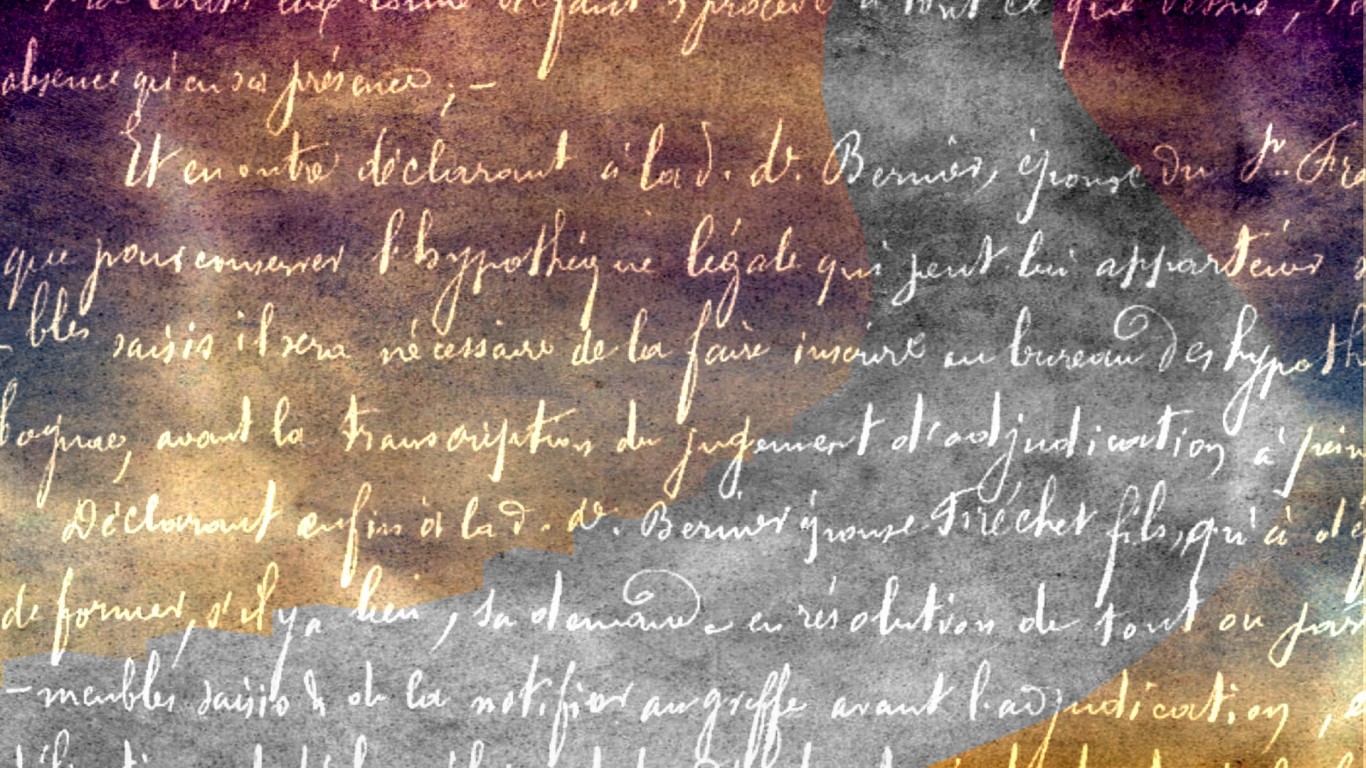 défaut procéder à tout ce que dessus,
absence qu'en sa présence ; -
Et en outre déclarant à lad. de. Bernier, épouse du Sr. Fré
que pour conserver l'hypothèque légale qui peut lui appartenir
-bles saisis il sera nécessaire de la faire inscrire au bureau des hypoth
avant la transcription du jugement d'adjudication à pein
Déclarant enfin à lad. de. Bernier épouse Fréchet fils, qu'à d
de former, s'il y a lieu, sa demande en résolution de tout ou par
-meubles saisis & de la notifier au greffe avant l'adjudication,